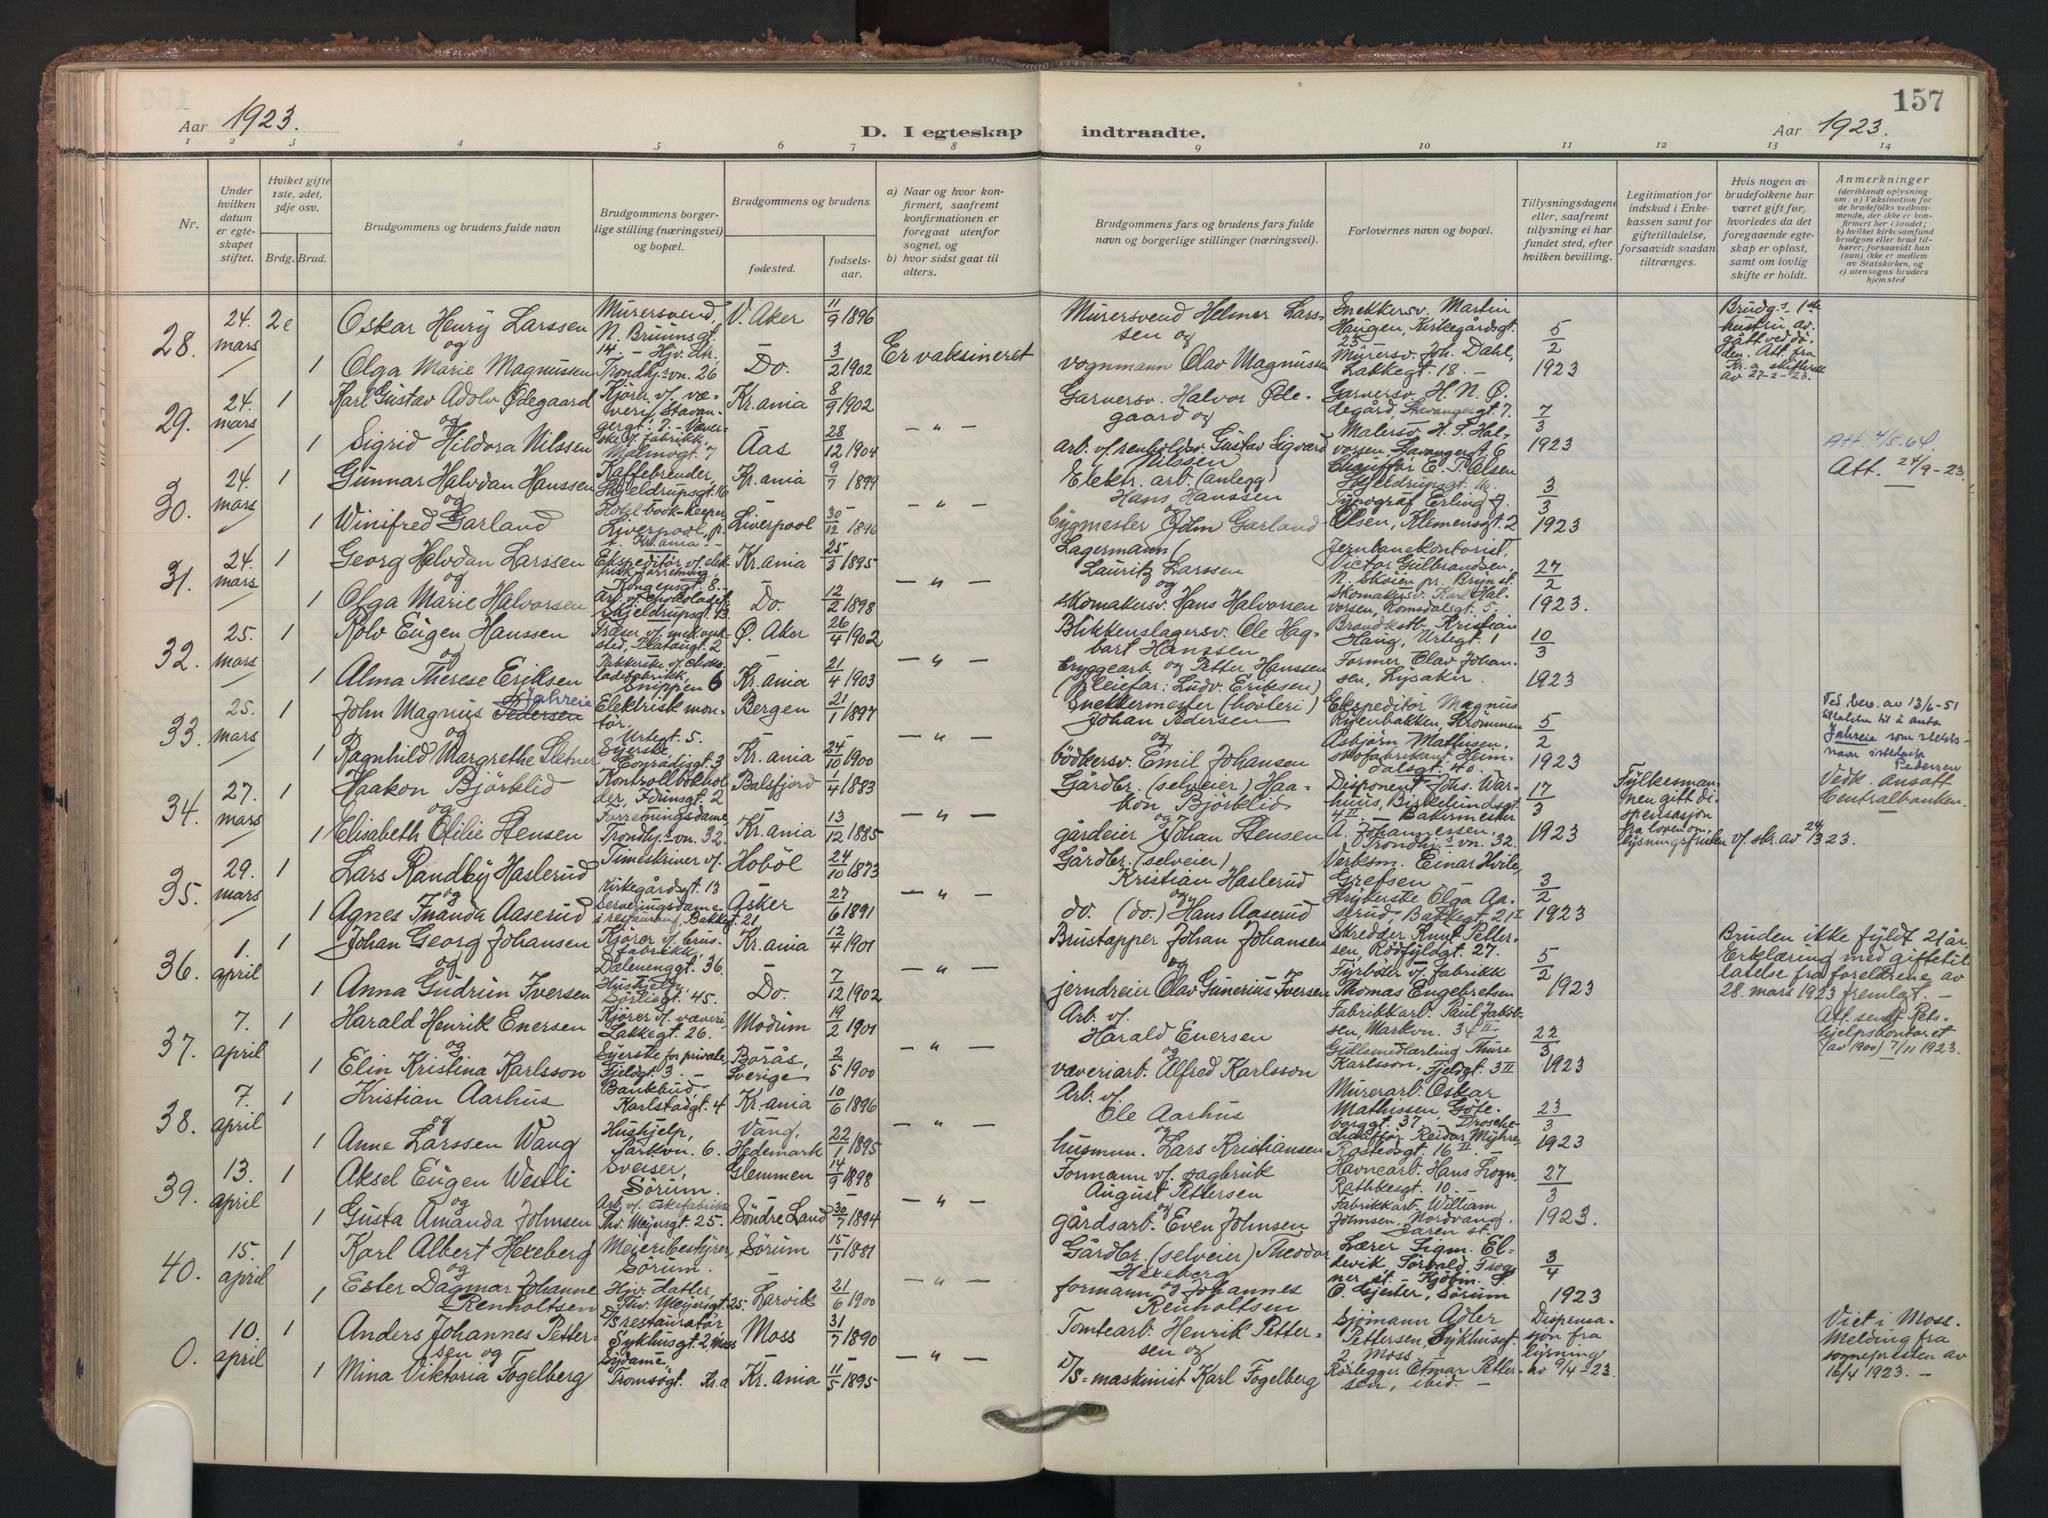 157
Aar 1923.
D. I egteskap indtraadte.
Aar 1923.
1 2 3 4 5 6 7 8 9 10 11 12 13 14
Nr.
Under hvilken datum er egteskapet stiftet.
Hviket gifte 1ste, 2det, 3dje osv.
Brdg. Brud.
Brudgommens og brudens fulde navn
Brudgommens borgerlige stilling (næringsvei) og bopæl.
Brudgommens og brudens
fødested.
fødselsaar.
a) Naar og hvor konfirmert, saafremt konfirmationen er foregaat utenfor sognet, og
b) hvor sidst gaat til alters.
Brudgommens fars og brudens fars fulde navn og borgerlige stillinger (næringsvei).
Forlovernes navn og bopæl.
Tillysningsdagene eller, saafremt tillysning ei har fundet sted, efter hvilken bevilling.
Legitimation for indskud i Enkekassen samt for giftetilladelse, forsaavidt saadan tiltrænges.
Hvis nogen av brudefolkene har været gift før, hvorledes da det foregaaende egteskap er opløst, samt om lovlig skifte er holdt.
Anmerkninger (deriblandt oplysning om: a) Vaksination for de brudefolks vedkommende, der ikke er konfirmert her i landet; b) hvilket kirkesamfund brudgom eller brud tilhører, forsaavidt han (hun) ikke er medlem av Statskirken, og c) utensogns bruders hjemsted
28. 24. mars 2e Oskar Henry Larssen Murersvend, N. Bruunsgt. 14. V. Aker 11/9 1896 Er vaksineret
Murersvend Helmer Larssen og Snekkersv. Martin Haugen, Kirkegårdsgt. 25 5/2 1923
Brudg.s 1ste hustru avgått ved døden. Att. fra Kr.a skifterett av 27-2-'23.
og 1 Olga Marie Magnussen Hjv. str. Trondhj.svn. 26 Do. 3/2 1902
vognmann Olav Magnussen Murersv. Joh. Dahl, Lakkegt. 18. -
29. 24. mars 1 Karl Gustav Adolv Ødegaard Kjører v. væveri, Stavangergt. 7. Kr.ania 8/9 1902 - " -
Garversv. Halvor Ødegaard og Garversv. H. N. Ødegård, Stavangergt. 7. 7/3 1923
og 1 Sigrid Hildora Nilssen Væverske v. fabrikk, Malmøgt. 7 Aas 28/12 1904
arb. v. renholdsv. Gustav Sigvard Nilssen Malersv. H. P. Halvorsen, Stavangergt. 6
Att. 4/5.64.
Att. 24/9-23
30. 24. mars 1 Gunnar Halvdan Hanssen Kaffebrender, Skjeldrupsgt. 16 Kr.ania 9/7 1899 - " -
Elektr. arb. (anlegg) Hans Hanssen Chauffør E. P. Olsen Skjeldrupsgt. 3/3 1923
og 1 Winifred Garland Hotel book-keeper Liverpool, p. t. Kr.ania Liverpool 30/12 1896
bygmester John Garland Typograf Erling Olsen, Klemensgt. 2
31. 24. mars 1 Georg Halvdan Larssen Ekspeditør v. elektrisk forretning Kongensgt. 8. Kr.ania 25/3 1895 - " -
Lagermann Lauritz Larssen Jernbanekontorist, Victor Gulbrandsen, N. Skøien pr. Bryn st. 27/2 1923.
og 1 Olga Marie Halvorsen Arb. v. chokoladef. Skjeldrupsgt. 13 Do. 12/2 1898
skomakersv. Hans Halvorsen Skomakersv. Karl Halvorsen, Romsdalsgt. 5.
32. 25. mars 1 Rolv Eugen Hanssen Fræser v. mek. verksted, Platousgt. 2 Ø. Aker 26/4 1902 - " -
Blikkenslagersv. Ole Hagbart Hanssen Brandkstb. Kristian Haug, Urtegt. 1 10/3 1923
og 1 Alma Therese Eriksen Pakkerske v. chokoladefabrikk, Snippen 6 Kr.ania 21/4 1903
bryggearb. og Petter Hanssen (Pleiefar: Ludv. Eriksen) Former Olav Johansen, Lysaker.
33. 25. mars 1 John Magnus Pedersen Jahreie Elektrisk montør, Urtegt. 5. Bergen 21/1 1897 - " -
Snekkermester (høvleri) Johan Pedersen Ekspeditør Magnus Ryenbakken, Strømmen 5/2 1923
og 1 Ragnhild Margrethe Sletner Syerske Conradisgt. 3 Kr.ania 24/10 1900
bødkersv. Emil Johansen Asbjørn Mathisen, skofabrikant, Heimdalsgt. 40.
Ved bev. av 13/6-51 tillatelse til å anta Jahreie som slektsnavn istedenfor Pedersen
34. 27. mars 1 Haakon Bjørklid Kontrollbokholder, Fürusgt. 2 Balsfjord 1/4 1883 - " -
Gårdbr. (selveier) Haakon Bjørklid Disponent Johs. Warhuus, Birkelundsgt. 4 II. 17/3 1923
Fylkesmannen gitt dispensasjon fra loven om lysningsfristen v. skr. av 24/3 23.
Vedk. ansatt Centralbanken.
og 1 Elisabeth Otilie Stensen Forretningsdame, Trondhj.svn. 32. Kr.ania 13/12 1885
gårdeier Johan Stensen Bakermester A. Johannessen, Trondhj.svn. 32.
35. 29. mars 1 Lars Randby Haslerud Timeskriver v. Kirkegårdsgt. 13 Hobøl 24/10 1873 - " -
Gårdbr. (selveier) Kristian Haslerud Verksm. Einar Hvile, Grefsen 3/2 1923
og 1 Agnes Inanda Aaserud Serveringsdame i restaurant, Bakkegt. 21 Asker 27/6 1891
do. (do.) Hans Aaserud Stryerske Olga Aaserud, Bakkegt. 21 II
36. 1. april 1 Johan Georg Johansen Kjører v. brusfabrikk, Dælenenggt. 36. Kr.ania 12/4 1901 - " -
Brustapper Johan Johansen Skredder Knut Pettersen, Rødfyldgt. 27. 5/2 1923
og 1 Anna Gudrun Iversen Hushjelp, Sørligt. 45. Do. 7/12 1902
jerndreier Olav Gunerius Iversen Fyrbøter v. fabrikk Thomas Engebretsen
Bruden ikke fyldt 21 år. Erklæring med giftetillatelse fra foreldrene av 28. mars 1923 fremlagt. -
37. 7. april 1 Harald Henrik Enersen Kjører v. væveri Lakkegt. 26. Modum 19/2 1901 - " -
Arb. v. Harald Enersen Fabrikkarb. Paul Jakobsen, Markvn. 34 II 22/3 1923
og 1 Elin Kristina Karlsson Syerske for private, Fjeldgt. 3. - Borås, Sverige 2/5 1900
væveriarb. Alfred Karlsson Gullsmedlærling Thure Karlsson, Fjeldgt. 3 II
Att. sendt Retshjelpskontoret (av 1900) 7/11 1923.
38. 7. april 1 Kristian Aarhus Bankbud Karlstadgt. 4 Kr.ania 10/6 1896 - " -
Arb. v. Ole Aarhus Murerarb. Oskar Mathissen, Gøteborggt. 37. 23/3 1923
og 1 Anne Larssen Wang Hushjelp, Parkvn. 6. Vang, Hedemark 22/1 1895
husmnn. Lars Kristiansen Droschechauffør Reidar Myhre Rastedsgt. 16 II. -
39. 13. april 1 Aksel Eugen Westli Sveiser, Sørum. Glemmen 14/9 1898 - " -
Formann v. sagbruk August Pettersen Havnearb. Hans Sogn Rathkesgt. 10. - 27/3 1923.
og 1 Gusta Amanda Johnsen Arb. v. Eskefabrikk Thv. Meyersgt. 25. Søndre Land 30/7 1894
gårdsarb. Even Johnsen Fabrikkarb. William Johnsen, Nordvang, Jaren st.
40. 15. april 1 Karl Albert Hexeberg Meieribestyrer, Sørum. Sørum 15/7 1881 - " -
Gårdbr. (selveier) Theodor Hexeberg Lærer Sigm. Eldevik, Sørvald, Frogner st. 3/4 1923
og 1 Ester Dagmar Johanne Renholtsen Hjv. datter, Thv. Meyersgt. 25. Larvik 21/6 1900
formann og Johannes Renholtsen Kjøbm. S. O. Gjester, Sørum
0. 10. april 1 Anders Johannes Pettersen og D/S restauratør Sykhusgt. 2, Moss Moss 31/7 1890 - " -
Tomtearb. Henrik Pettersen og Sjømann Adler Pettersen, Sykhusgt. 2 Moss. Dispensasjon fra lysning av 9/4-23.
1 Mina Viktoria Fogelberg Sydame, Tromsøgt. Kr.a Kr.ania 11/5 1895
D/S-maskinist Karl Fogelberg Rørlegger Otmar Pettersen, ibid. -
Viet i Moss. Melding fra sognepresten av 16/4 1923. -